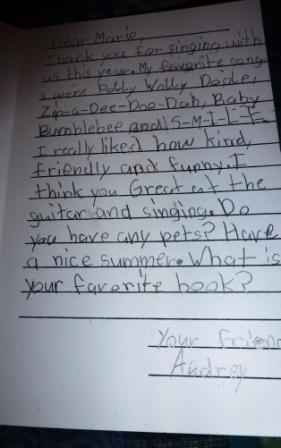 Dear Marie,
Thank you for singing with
us this year. My favorite song
s were Polly Wolly Doole,
Zip-a-Dee-Doo-Dah, Baby
Bumblebee and S-M-I-L-E.
I really liked how kind,
friendly and funny. I
think you Great at the
guitar and singing. Do
you have any pets? Have
a nice summer. What is
your favorite book?
Your friend
Audrey